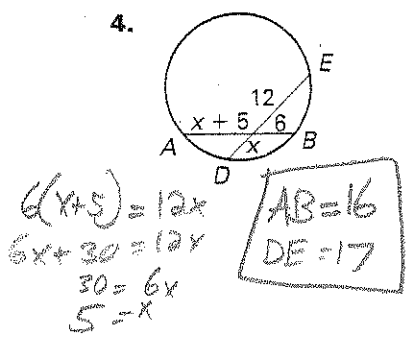 4.
E
12
x + 5
6
A
B
x
D
6(x+5) = 12x
6x+30 = 12x
30 = 6x
5 = x
AB = 16
DE = 17